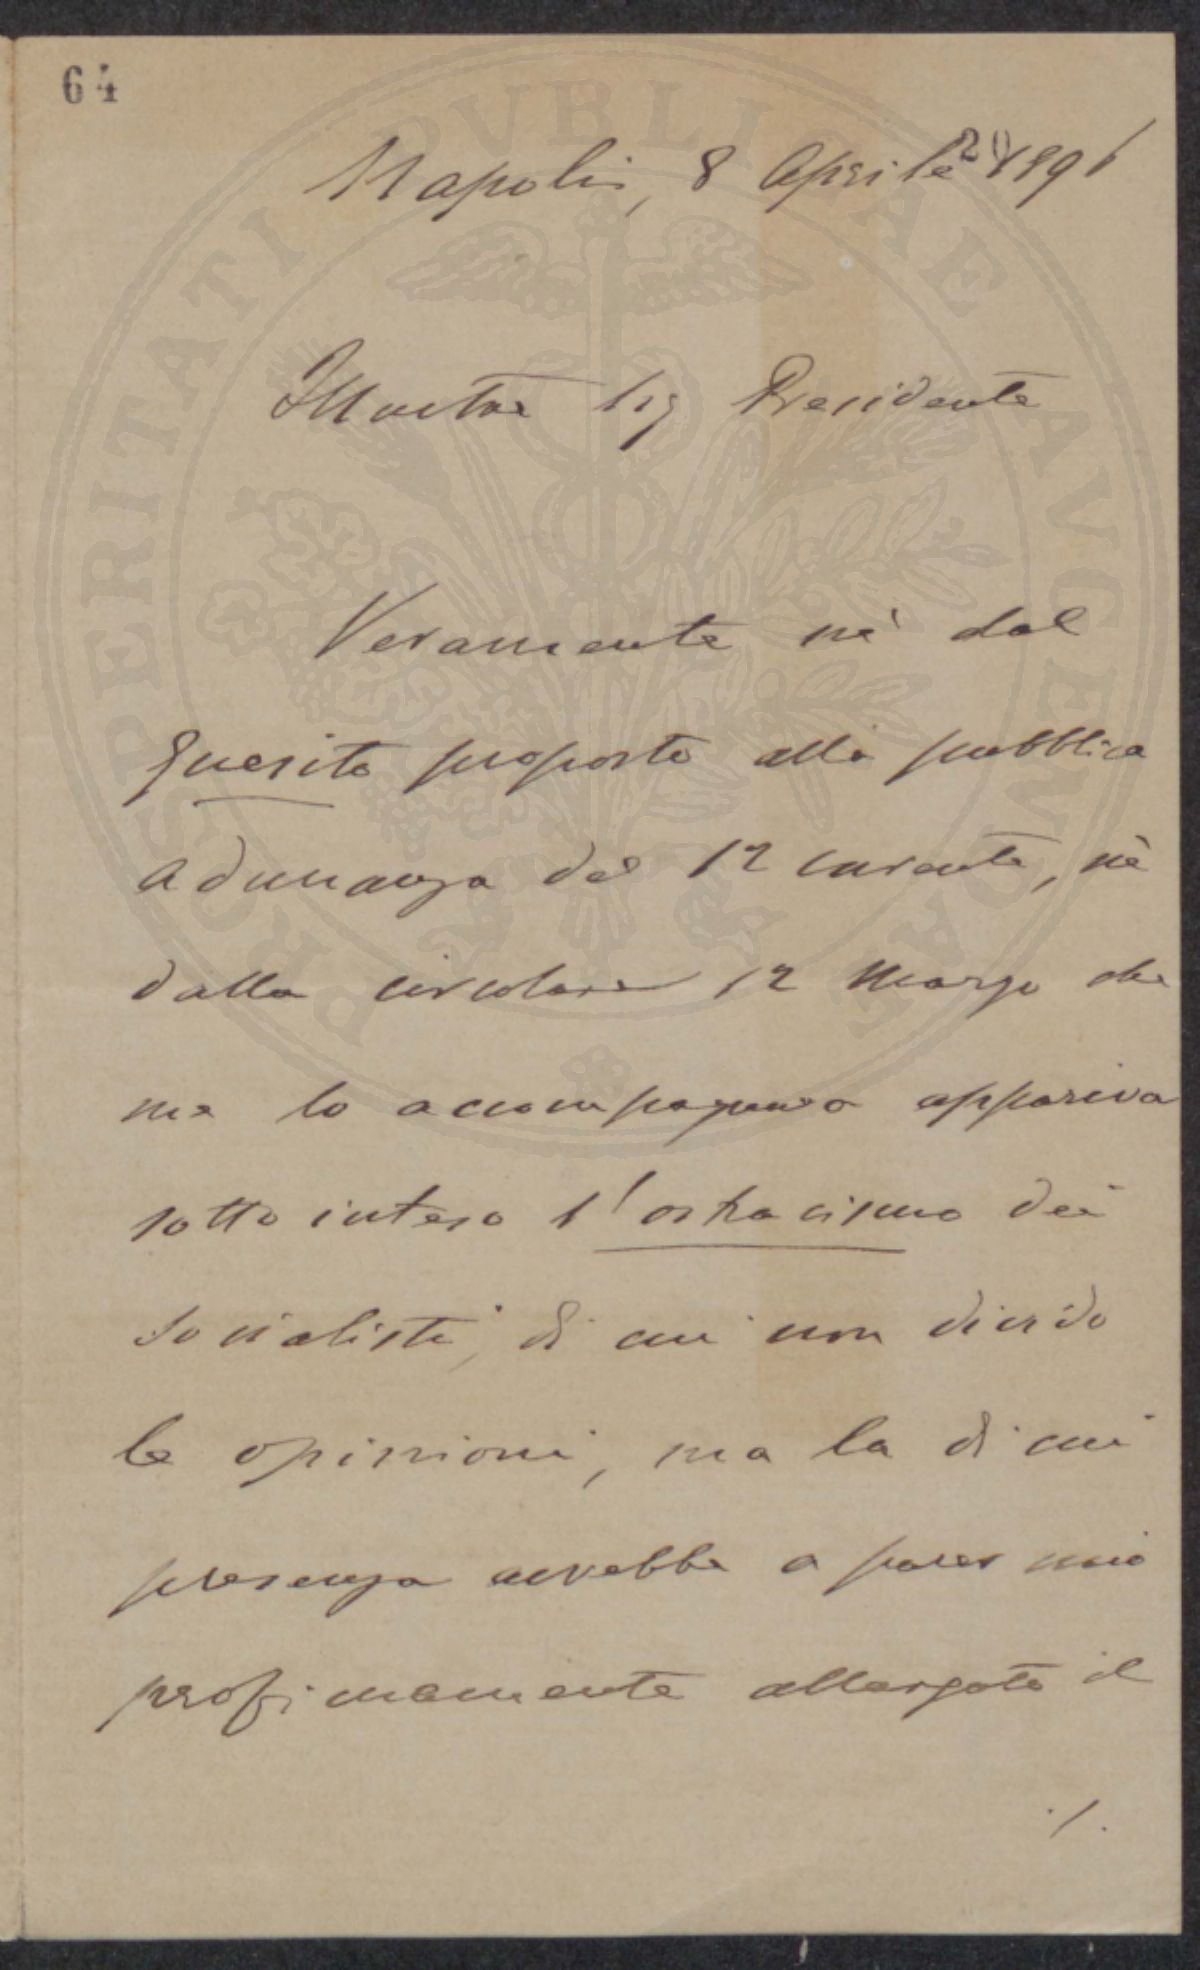 64
Napoli, 8 Aprile 1891
20
Illustre Sig Presidente
Veramente nè dal
quesito proposto alla pubblica
adunanza del 12 corrente, nè
dalla circolare 12 Marzo che
me lo accompagnava appariva
sotto inteso l'ostracismo dei
socialisti, di cui non divido
le opinioni, ma la di cui
presenza avrebbe a parer mio
allargato il
./.
PROSPERITATI PVBLICAE AVGENDAE